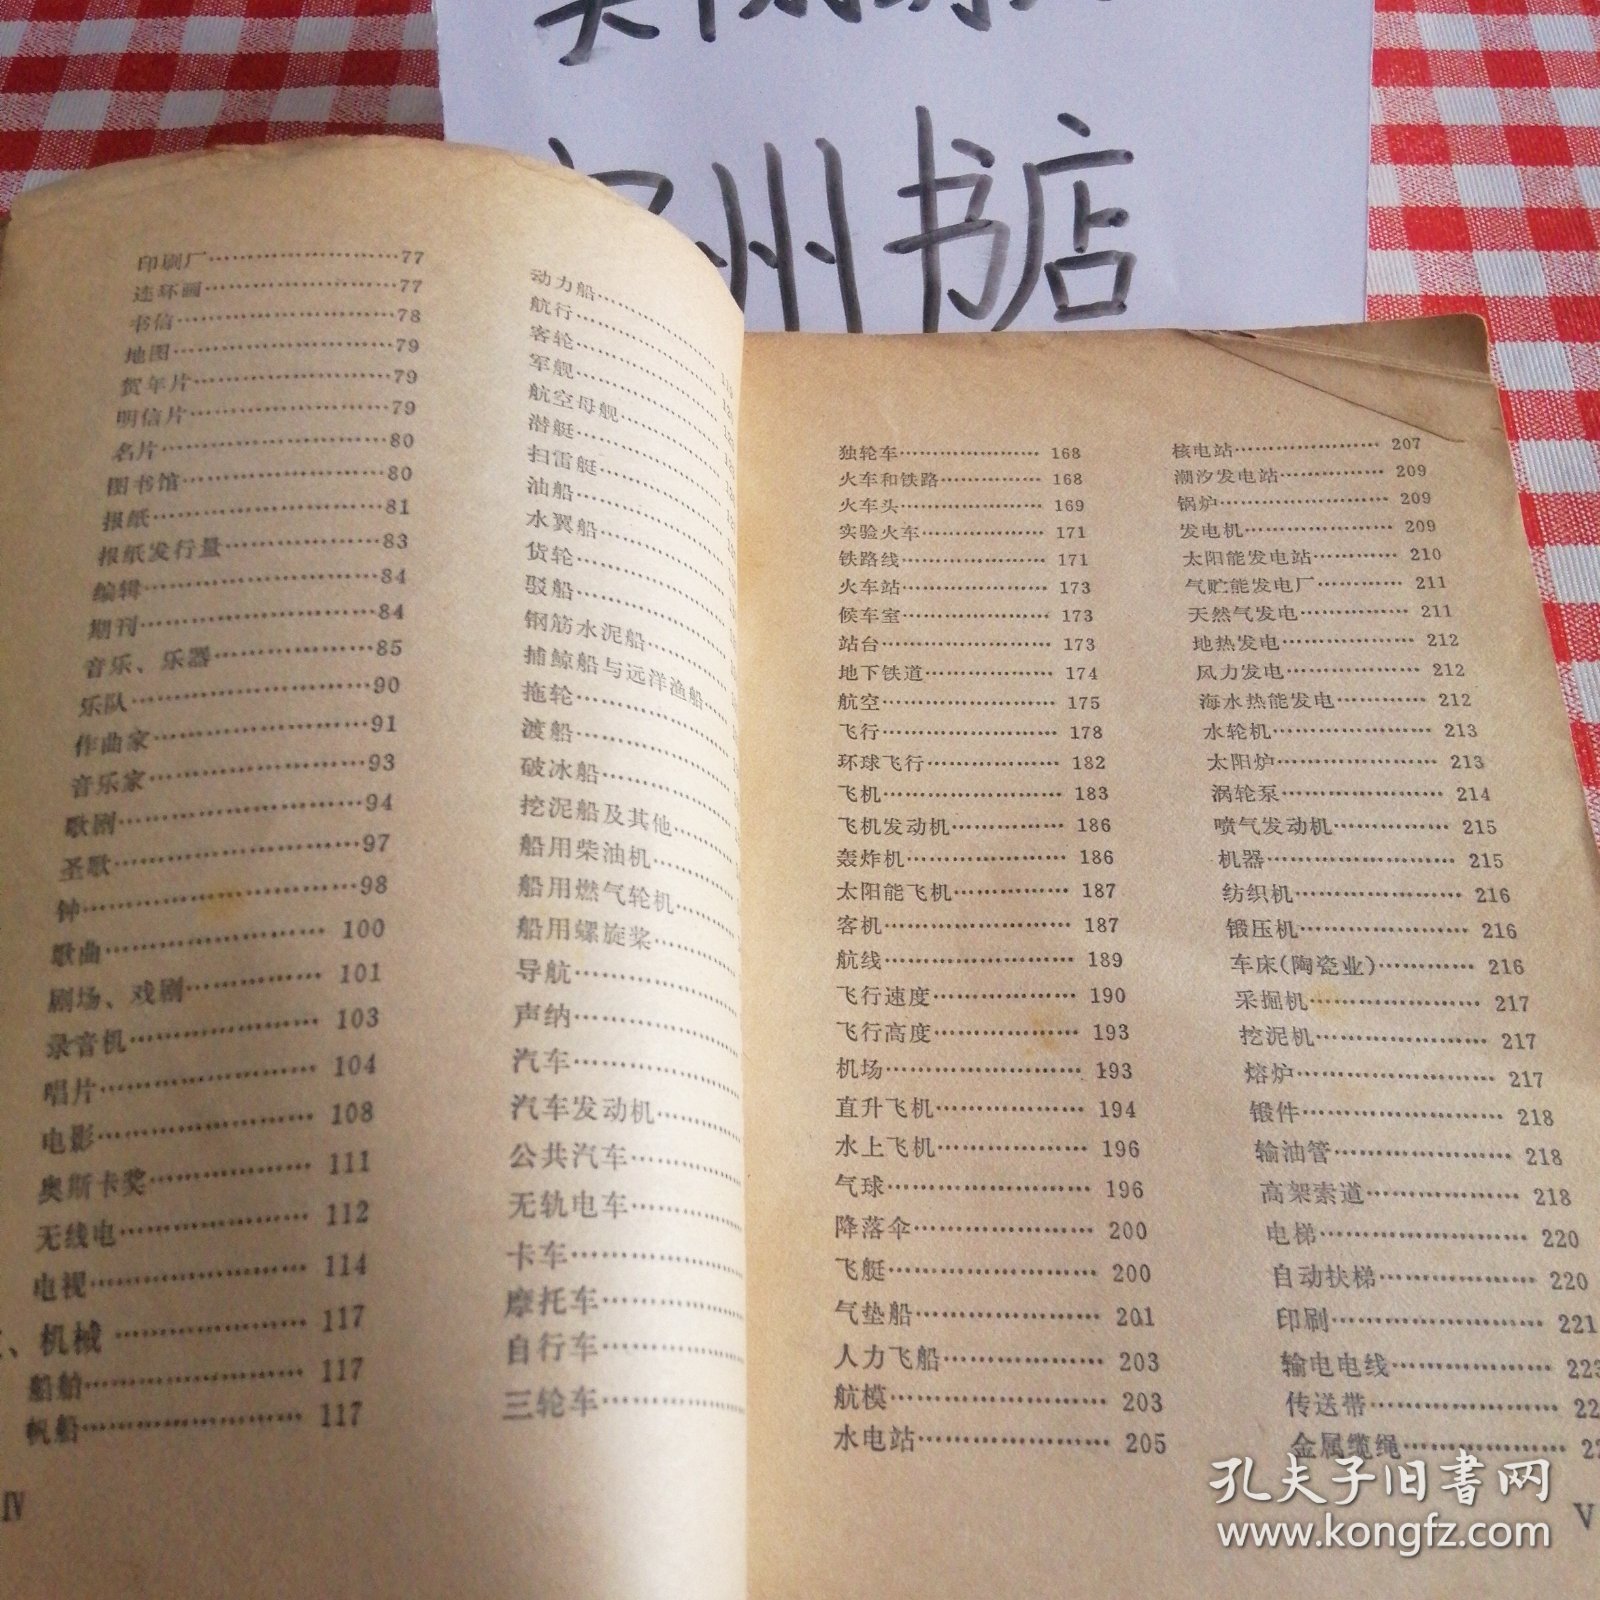 州书店
印刷厂……………………77
连环画……………………77
书信……………………78
地图……………………79
贺年片……………………79
明信片……………………79
名片……………………80
图书馆……………………80
报纸……………………81
报纸发行量……………………83
编辑……………………84
期刊……………………84
音乐、乐器……………………85
乐队……………………90
作曲家……………………91
音乐家……………………93
歌剧……………………94
圣歌……………………97
钟……………………98
歌曲……………………100
剧场、戏剧……………………101
录音机……………………103
唱片……………………104
电影……………………108
奥斯卡奖……………………111
无线电……………………112
电视……………………114
、机械……………………117
船舶……………………117
帆船……………………117
IV
动力船……………………
航行……………………
客轮……………………
军舰……………………
航空母舰……………………
潜艇……………………
扫雷艇……………………
油船……………………
水翼船……………………
货轮……………………
驳船……………………
钢筋水泥船……………………
捕鲸船与远洋渔船……
拖轮……………………
渡船……………………
破冰船……………………
挖泥船及其他……………………
船用柴油机……………………
船用燃气轮机……………………
船用螺旋桨……………………
导航……………………
声纳……………………
汽车……………………
汽车发动机……………………
公共汽车……………………
无轨电车……………………
卡车……………………
摩托车……………………
自行车……………………
三轮车……………………
独轮车……………………168
火车和铁路……………………168
火车头……………………169
实验火车……………………171
铁路线……………………171
火车站……………………173
候车室……………………173
站台……………………173
地下铁道……………………174
航空……………………175
飞行……………………178
环球飞行……………………182
飞机……………………183
飞机发动机……………………186
轰炸机……………………186
太阳能飞机……………………187
客机……………………187
航线……………………189
飞行速度……………………190
飞行高度……………………193
机场……………………193
直升飞机……………………194
水上飞机……………………196
气球……………………196
降落伞……………………200
飞艇……………………200
气垫船……………………201
人力飞船……………………203
航模……………………203
水电站……………………205
核电站……………………207
潮汐发电站……………………209
锅炉……………………209
发电机……………………209
太阳能发电站……………………210
气贮能发电厂……………………211
天然气发电……………………211
地热发电……………………212
风力发电……………………212
海水热能发电……………………212
水轮机……………………213
太阳炉……………………213
涡轮泵……………………214
喷气发动机……………………215
机器……………………215
纺织机……………………216
锻压机……………………216
车床(陶瓷业)……………………216
采掘机……………………217
挖泥机……………………217
熔炉……………………217
锻件……………………218
输油管……………………218
高架索道……………………218
电梯……………………220
自动扶梯……………………220
印刷……………………221
输电电线……………………223
传送带……………………22
金属缆绳……………………22
V
孔夫子旧书网
www.kongfz.com